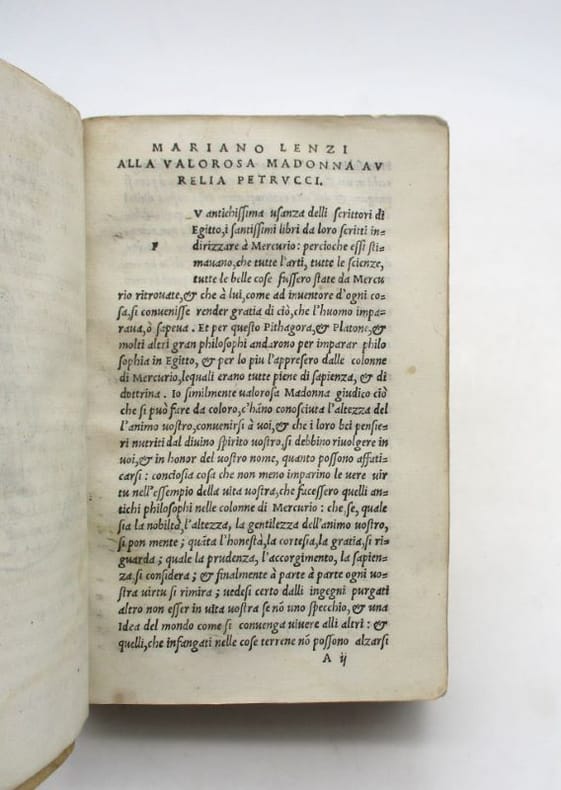 MARIANO LENZI
ALLA VALOROSA MADONNA AV
RELIA PETRVCCI.
F V antichissima usanza delli scrittori di
Egitto, i santissimi libri da loro scritti in=
dirizzare à Mercurio: percioche essi sti=
mavano, che tutte l'arti, tutte le scienze,
tutte le belle cose fussero state da Mercu
rio ritrovate, & che à lui, come ad inventore d'ogni co=
sa, si convenisse render gratia di ciò, che l'huomo impa=
rava, ò sapeva. Et per questo Pithagora, & Platone, &
molti altri gran philosophi andarono per imparar philo
sophia in Egitto, & per lo piu l'appresero dalle colonne
di Mercurio, lequali erano tutte piene di sapienza, & di
dottrina. Io similmente valorosa Madonna giudico ciò
che si può fare da coloro, c'hãno conosciuta l'altezza del
l'animo vostro, convenirsi à voi, & che i loro bei pensie=
ri nutriti dal divino spirito vostro, si debbino rivolgere in
voi, & in honor del vostro nome, quanto possono affati=
carsi: conciosia cosa che non meno imparino le vere vir
tu nell'essempio della vita vostra, che facessero quelli an=
tichi philosophi nelle colonne di Mercurio: che se, quale
sia la nobiltà, l'altezza, la gentilezza dell'animo vostro,
si pon mente; quãta l'honestà, la cortesia, la gratia, si ri=
guarda; quale la prudenza, l'accorgimento, la sapien=
za, si considera; & finalmente à parte à parte ogni vo=
stra virtu si rimira; vedesi certo dalli ingegni purgati
altro non esser in vita vostra se nõ uno specchio, & una
Idea del mondo come si convenga vivere alli altri: &
quelli, che infangati nelle cose terrene nõ possono alzarsi
A ij